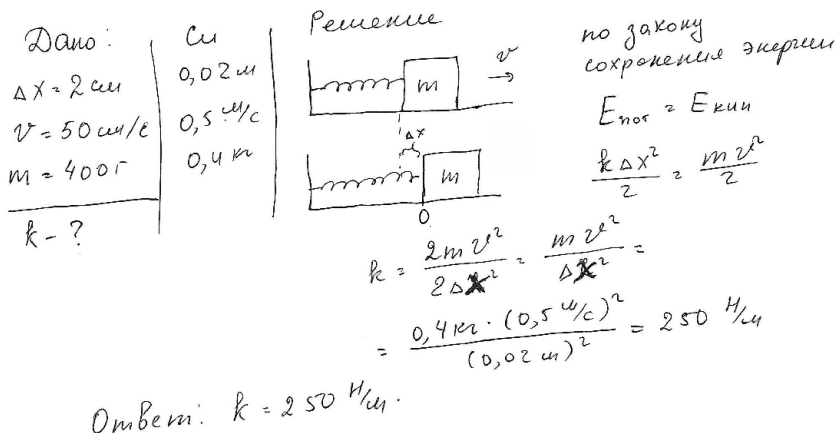 Дано:
Δx = 2 см
v = 50 см/с
m = 400 г
k - ?
Си
0,02 м
0,5 м/с
0,4 кг
Решение
m
v
Δx
m
0
по закону
сохранения энергии
Eпот = Eкин
kΔx²/2 = mv²/2
k = 2mv²/2Δx² = mv²/Δx² =
= 0,4 кг · (0,5 м/с)²/(0,02 м)² = 250 Н/м
Ответ: k = 250 Н/м.